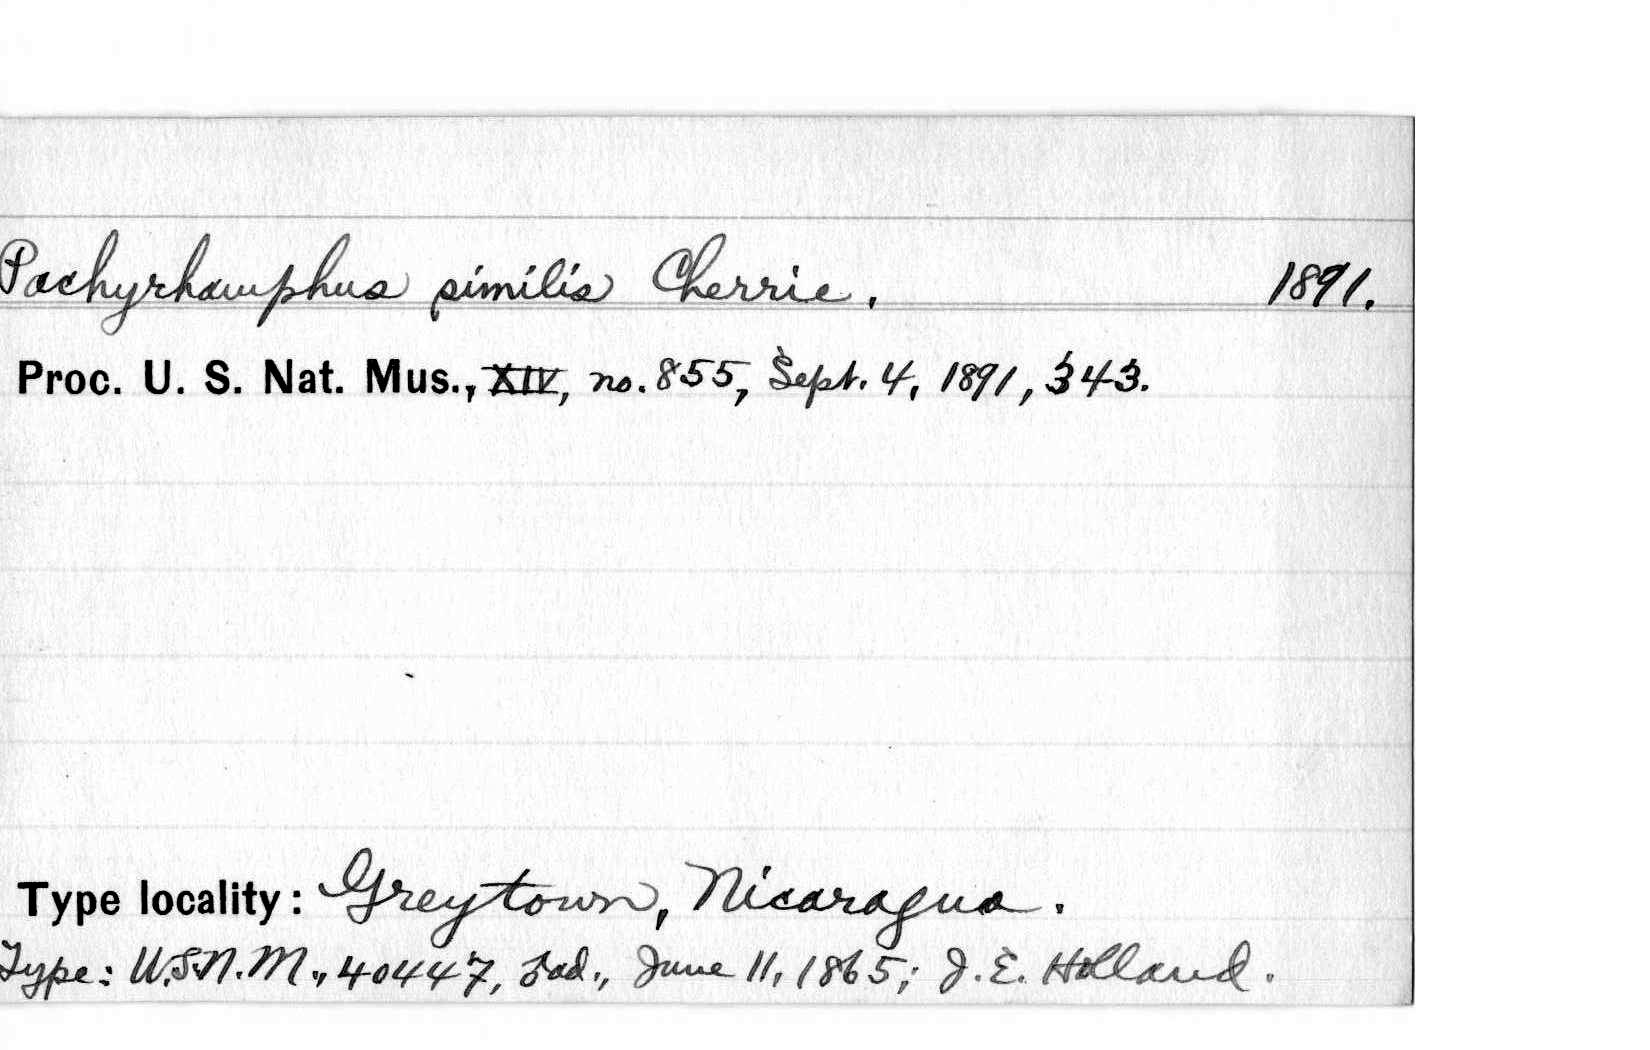 Pachyrhamphus similis Cherrie. 1891.
Proc. U. S. Nat. Mus., XIV, no. 855, Sept. 4, 1891, 343.
Type locality: Greytown, Nicaragua.
Type: U.S.N.M., 40447, ad., June 11, 1865; J. E. Holland.